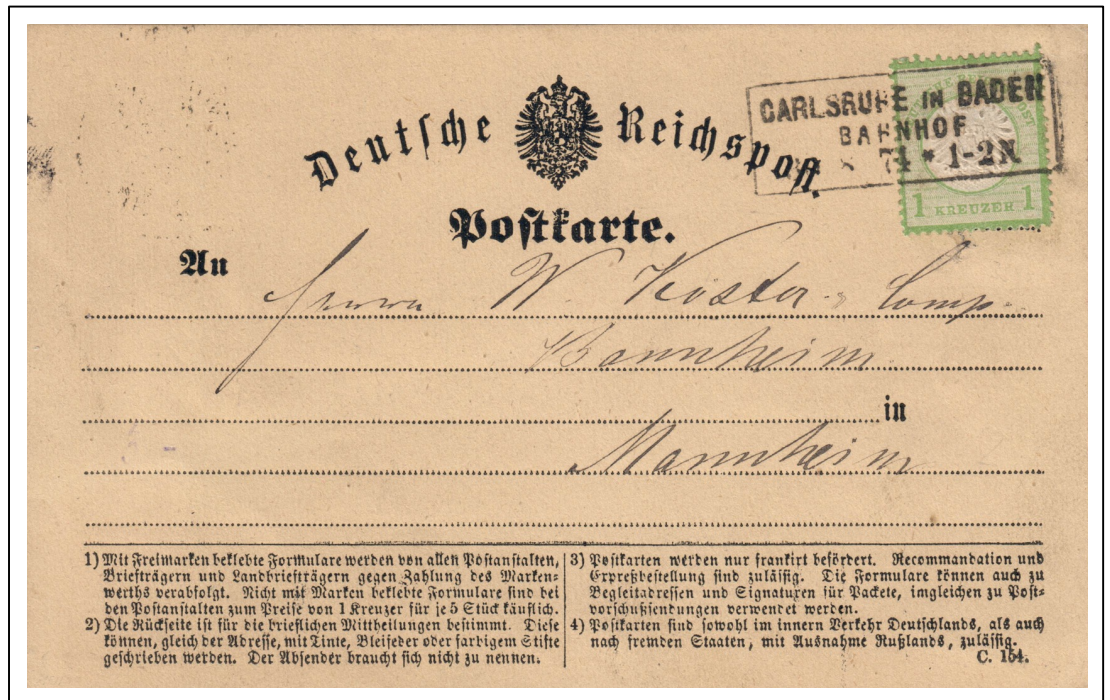 Deutsche Reichspost
CARLSRUHE IN BADEN
BAHNHOF
74 * 1-2N
1 KREUZER 1
Postkarte.
An
Herrn W. Köster Comp.
Mannheim
in
Mannheim
1) Mit Freimarken beklebte Formulare werden von allen Postanstalten,
Briefträgern und Landbriefträgern gegen Zahlung des Marken-
werths verabfolgt. Nicht mit Marken beklebte Formulare sind bei
den Postanstalten zum Preise von 1 Kreuzer für je 5 Stück käuflich.
2) Die Rückseite ist für die brieflichen Mittheilungen bestimmt. Diese
können, gleich der Adresse, mit Tinte, Bleifeder oder farbigem Stifte
geschrieben werden. Der Absender braucht sich nicht zu nennen.
3) Postkarten werden nur frankirt befördert. Recommandation und
Expreßbestellung sind zulässig. Die Formulare können auch zu
Begleitadressen und Signaturen für Packete, imgleichen zu Post-
vorschußsendungen verwendet werden.
4) Postkarten sind sowohl im innern Verkehr Deutschlands, als auch
nach fremden Staaten, mit Ausnahme Rußlands, zulässig.
C. 154.